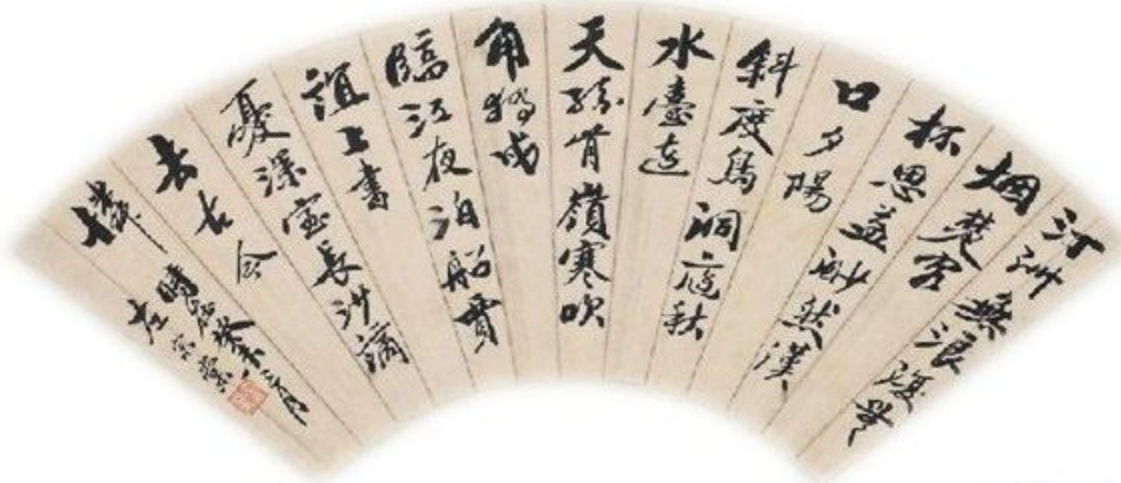 汀洲無浪復無
烟楚客
相思益渺然漢
口夕陽
斜度鳥洞庭秋
水臺連
天孤背嶺寒吹
角獨戍
臨江夜泊船賈
誼上書
憂深室長沙謫
去古今
憐
時癸未月
左宗棠